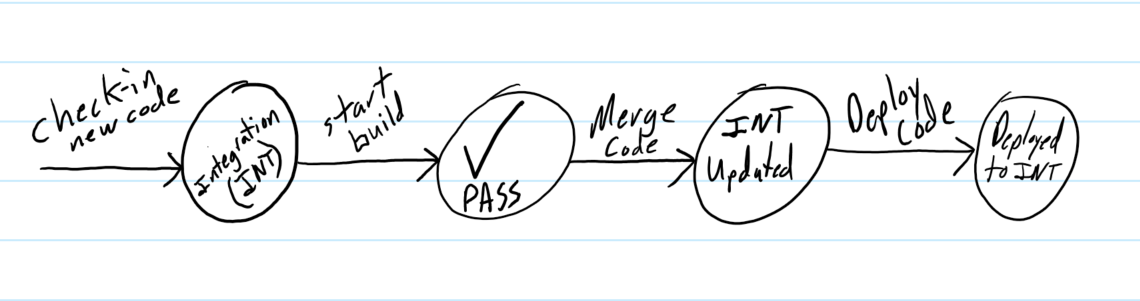 check-in
new code
Integration
(INT)
start
build
PASS
Merge
Code
INT
Updated
Deploy
Code
Deployed
to INT